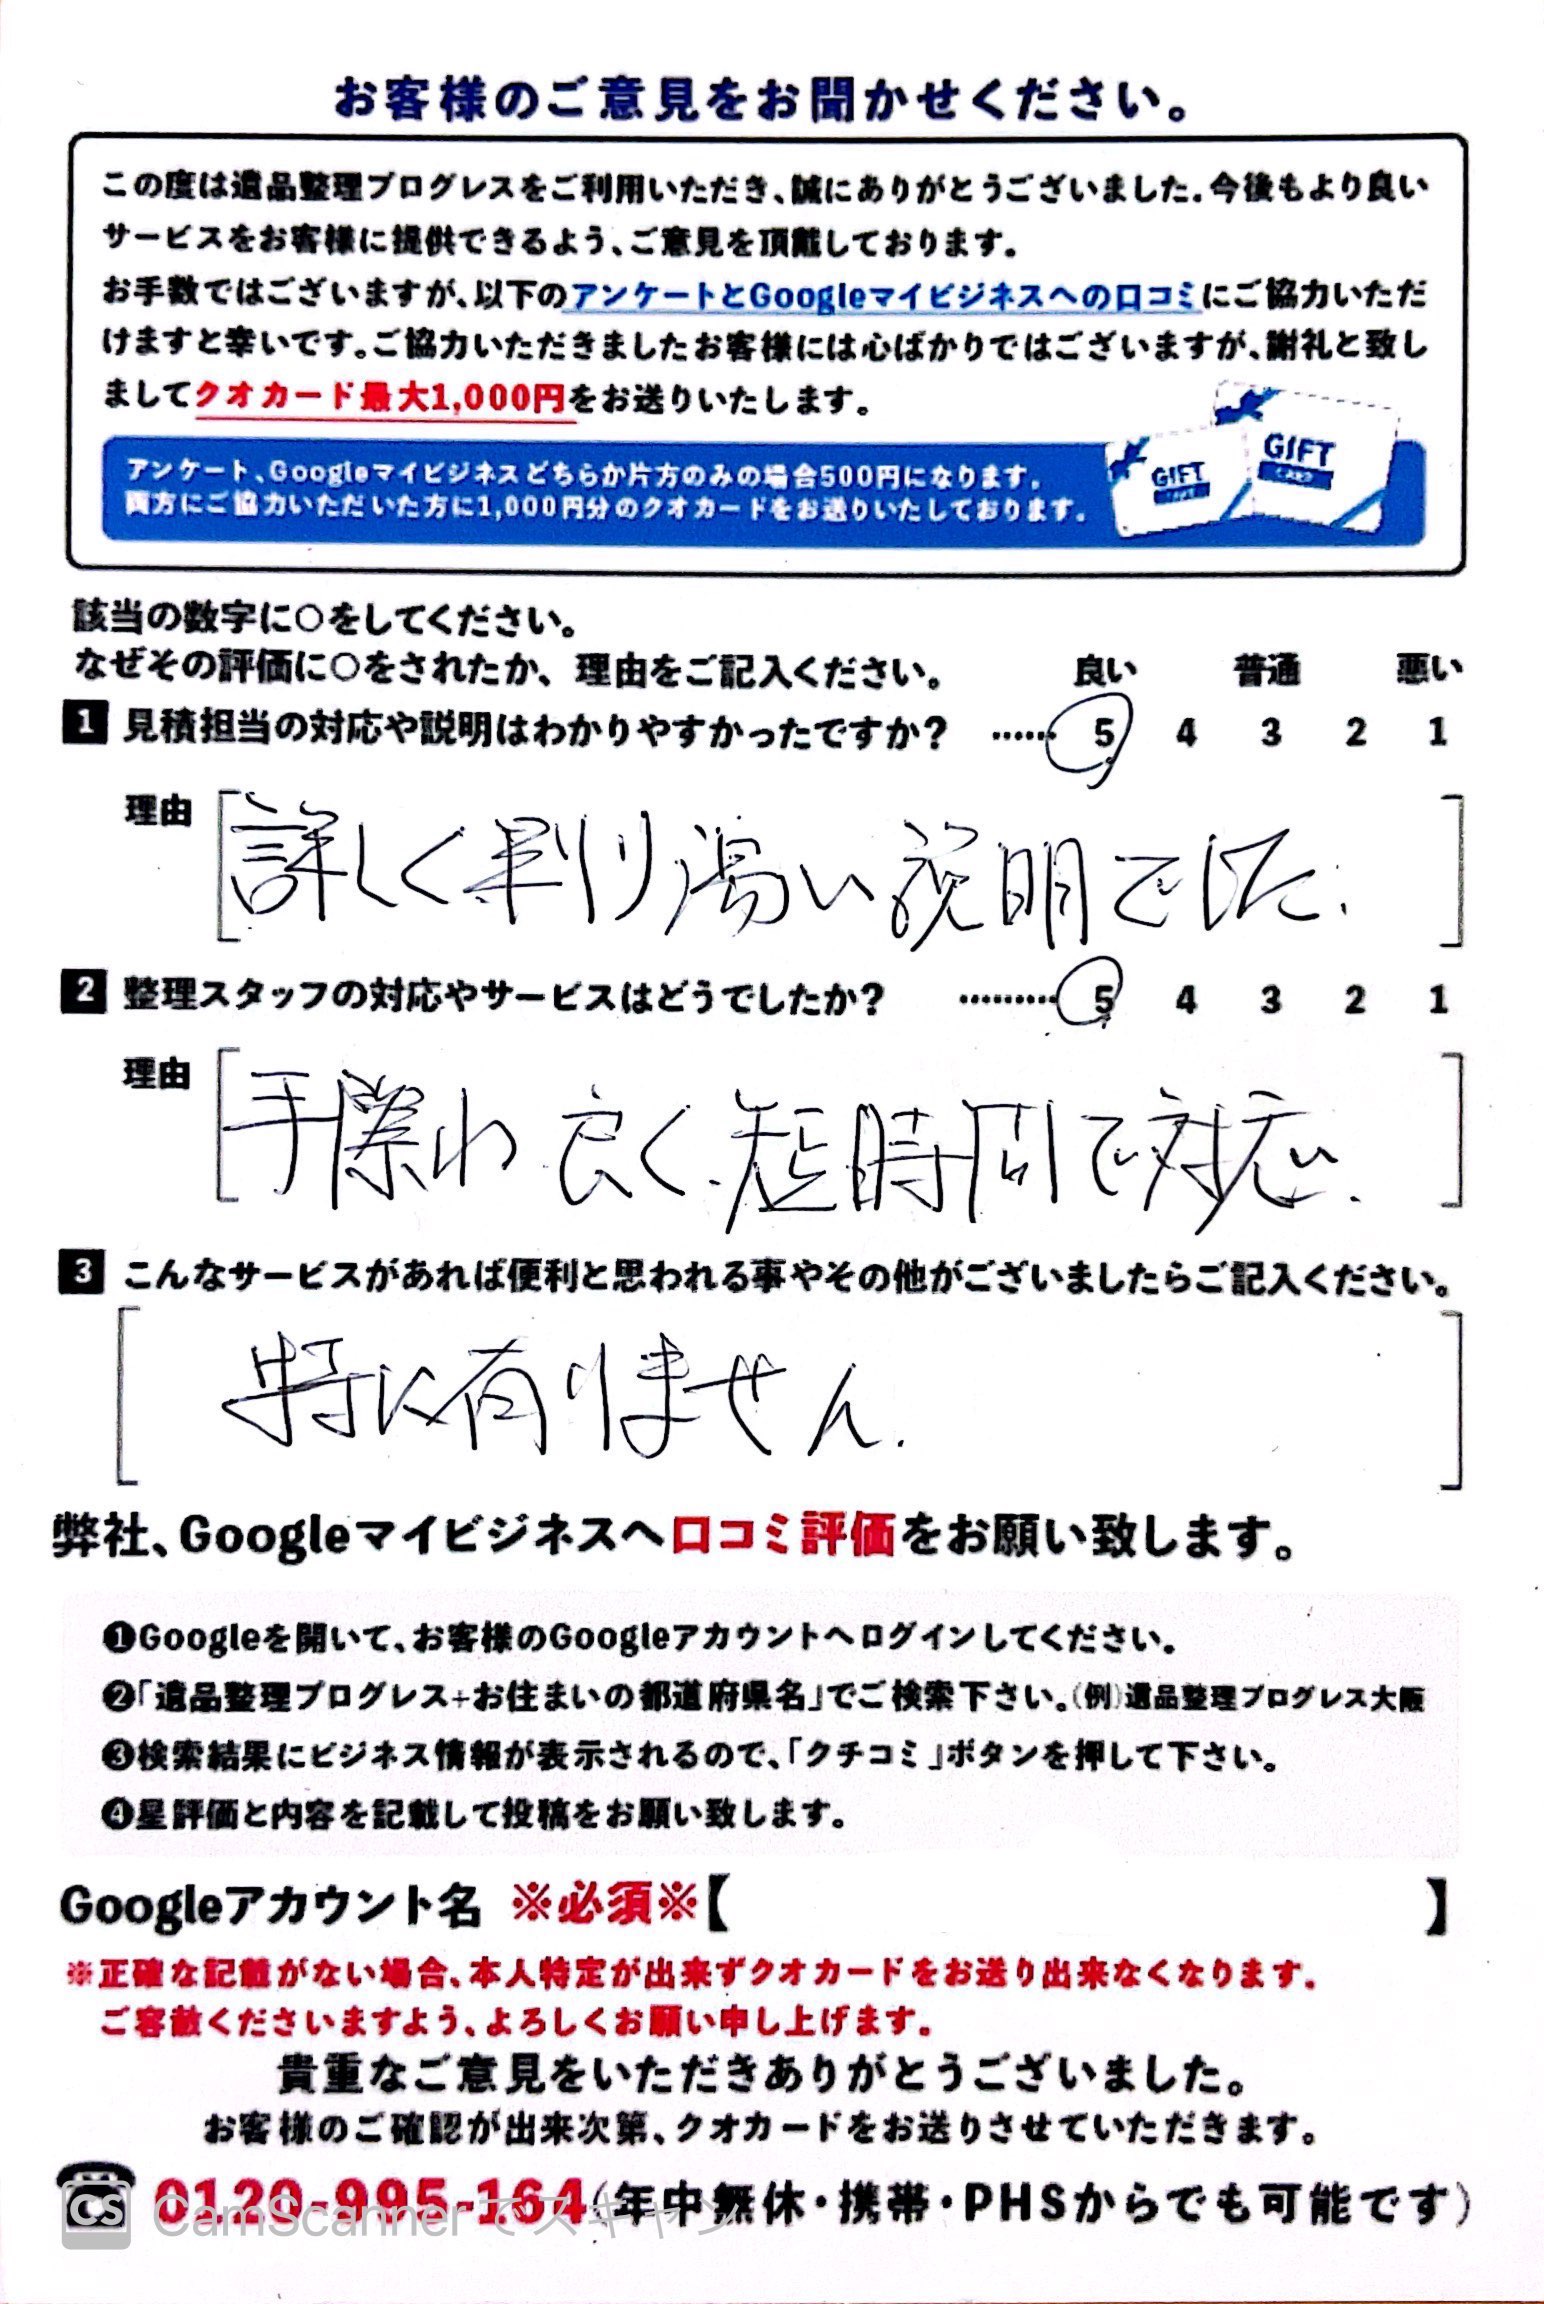 お客様のご意見をお聞かせください。
この度は遺品整理プログレスをご利用いただき、誠にありがとうございました。今後もより良い
サービスをお客様に提供できるよう、ご意見を頂戴しております。
お手数ではございますが、以下のアンケートとGoogleマイビジネスへの口コミにご協力いただ
けますと幸いです。ご協力いただきましたお客様には心ばかりではございますが、謝礼と致し
ましてクオカード最大1,000円をお送りいたします。
アンケート、Googleマイビジネスどちらか片方のみの場合500円になります。
両方にご協力いただいた方に1,000円分のクオカードをお送りいたしております。
GIFT
GIFT
CARD
該当の数字に○をしてください。
なぜその評価に○をされたか、理由をご記入ください。 良い 普通 悪い
1 見積担当の対応や説明はわかりやすかったですか? ...... 5 4 3 2 1
理由 詳しく判り易い説明でした.
2 整理スタッフの対応やサービスはどうでしたか? ......... 5 4 3 2 1
理由 手際わ良く.短時間で対応.
3 こんなサービスがあれば便利と思われる事やその他がございましたらご記入ください。
特に有りません.
弊社、Googleマイビジネスへ口コミ評価をお願い致します。
❶Googleを開いて、お客様のGoogleアカウントへログインしてください。
❷「遺品整理プログレス+お住まいの都道府県名」でご検索下さい。(例)遺品整理プログレス大阪
❸検索結果にビジネス情報が表示されるので、「クチコミ」ボタンを押して下さい。
❹星評価と内容を記載して投稿をお願い致します。
Googleアカウント名 ※必須※【 】
※正確な記載がない場合、本人特定が出来ずクオカードをお送り出来なくなります。
ご容赦くださいますよう、よろしくお願い申し上げます。
貴重なご意見をいただきありがとうございました。
お客様のご確認が出来次第、クオカードをお送りさせていただきます。
0120-995-164(年中無休・携帯・PHSからでも可能です)
CS CamScannerでスキャン